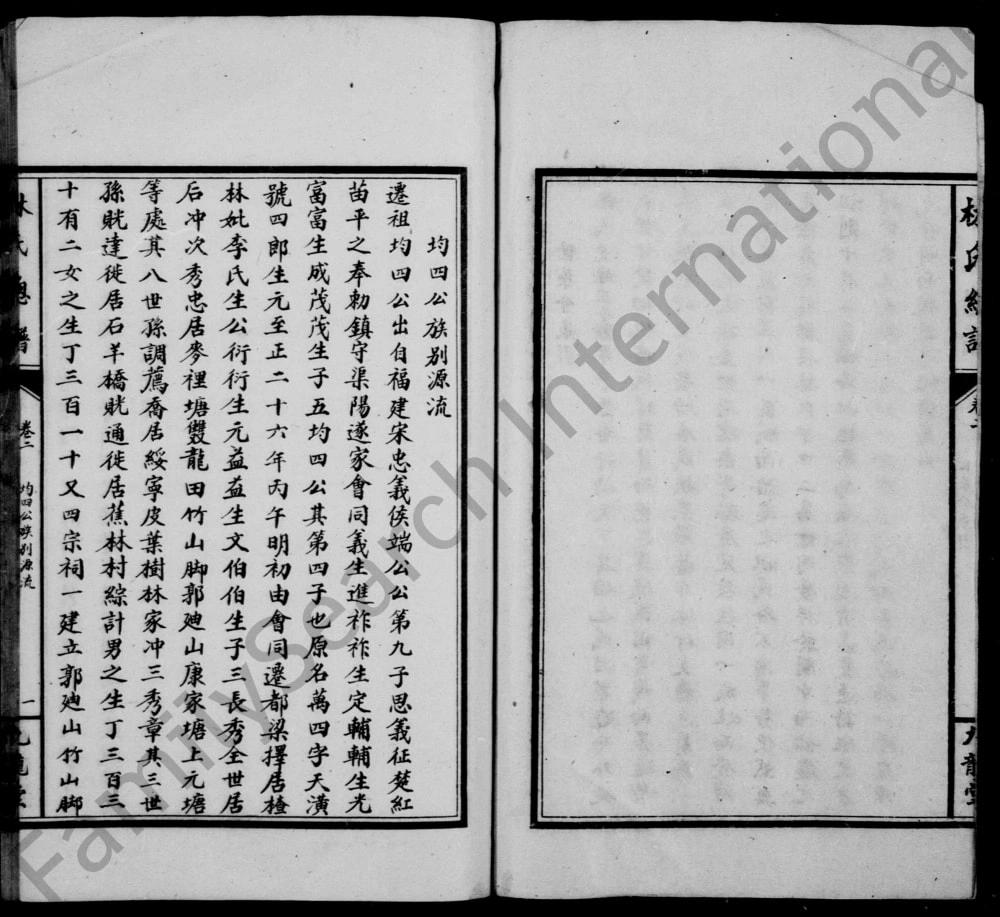 林氏總譜
卷二
九龍堂
均四公族別源流
遷祖均四公出自福建宋忠義侯端公公第九子思義征楚紅
苗平之奉勅鎮守渠陽遂家會同義生進祚祚生定輔輔生光
富富生成茂茂生子五均四公其第四子也原名萬四字天潢
號四郎生元至正二十六年丙午明初由會同遷都梁擇居楂
林妣李氏生公衍衍生元益益生文伯伯生子三長秀全世居
后冲次秀忠居麥裡塘雙龍田竹山脚郭廸山康家塘上元塘
等處其八世孫調薦喬居綏寧皮葉樹林家冲三秀章其三世
孫晄達徙居石羊橋晄通徙居蕉林村綜計男之生丁三百三
十有二女之生丁三百一十又四宗祠一建立郭廸山竹山脚
林氏總譜
卷二
均四公族別源流
一
九龍堂
FamilySearch International